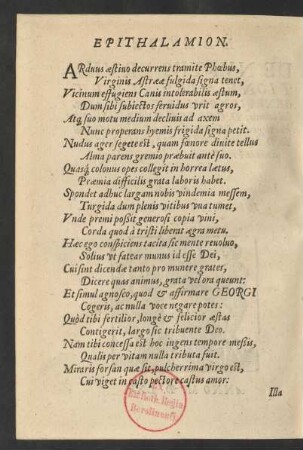 EPITHALAMION.
ARduus æstiuo decurrens tramite Phœbus,
Virginis Astrææ fulgida signa tenet,
Vicinum effugiens Canis intolerabilis æstum,
Dum sibi subiectos feruidus vrit agros,
Atq; suo motu medium decliuis ad axem
Nunc properans hyemis frigida signa petit.
Nudus ager segete est, quam fœnore diuite tellus
Alma parens gremio præbuit ante suo.
Quasq; colonus opes collegit in horrea lætus,
Præmia difficilis grata laboris habet.
Spondet adhuc largam nobis vindemia messem,
Turgida dum plenis vitibus vua tumet,
Vnde premi possit generosi copia vini,
Corda quod à tristi liberat ægra metu.
Hæc ego conspiciens tacita sic mente reuoluo,
Solius vt fatear munus id esse Dei,
Cui sint dicendæ tanto pro munere grates,
Dicere quas animus, grata vel ora queunt:
Et simul agnosco, quod & affirmare GEORGI
Cogeris, ac nulla voce negare potes:
Quòd tibi fertilior, longè & felicior æstas
Contigerit, largo sic tribuente Deo.
Nam tibi concessa est hoc ingens tempore messis,
Qualis per vitam nulla tributa fuit.
Miraris forsan quæ sit, pulcherrima virgo est,
Cui viget in casto pectore castus amor:
Illa
Biblioth. Regia
Berolinensi